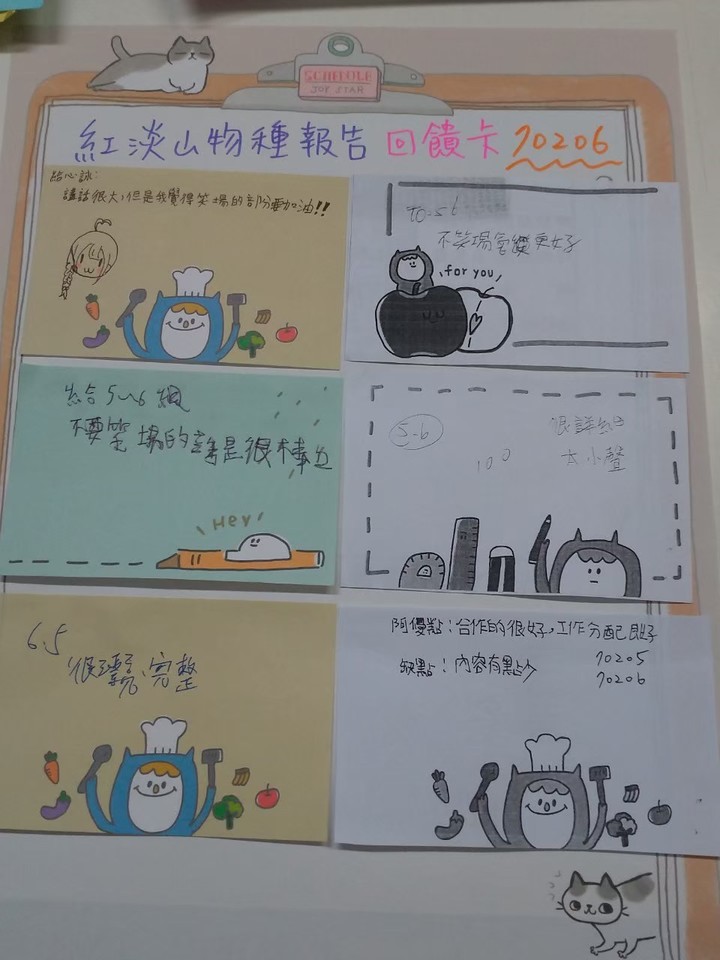 SCHEDULE
JOY STAR
紅淡山物種報告 回饋卡 70206
給心詠:
講話很大,但是我覺得笑場的部份要加油!!
TO.5 6
不笑場會變更好
for you
給合5~6組
不要笑場的話是很棒的
Hey
5-6
很詳細
太小聲
100
6.5
很完整
優點:合作的很好,工作分配
缺點:內容有點少
70205
70206